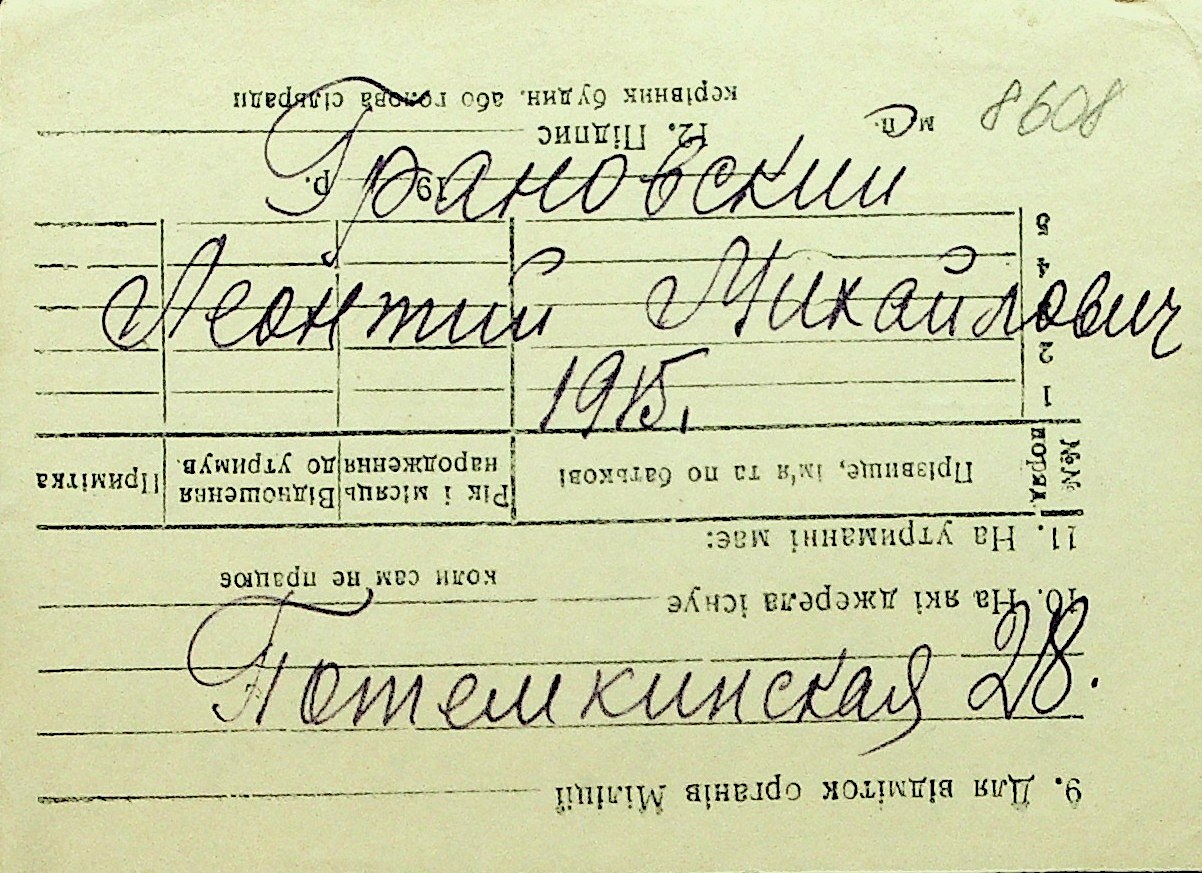 8608
Грановский
Леонтий Михайлович
1915,
Потемкинская 28.
9. Для відміток органів Міліції
10. На які джерела існує
коли сам не працює
11. На утриманні має:
№№ поряд. Прізвище, ім'я та по батькові Рік і місяць народження Відношення до утримув. Примітка
1
2
3
4
5
19 р.
12. Підпис
м. п.
керівник будин. або голова сільради